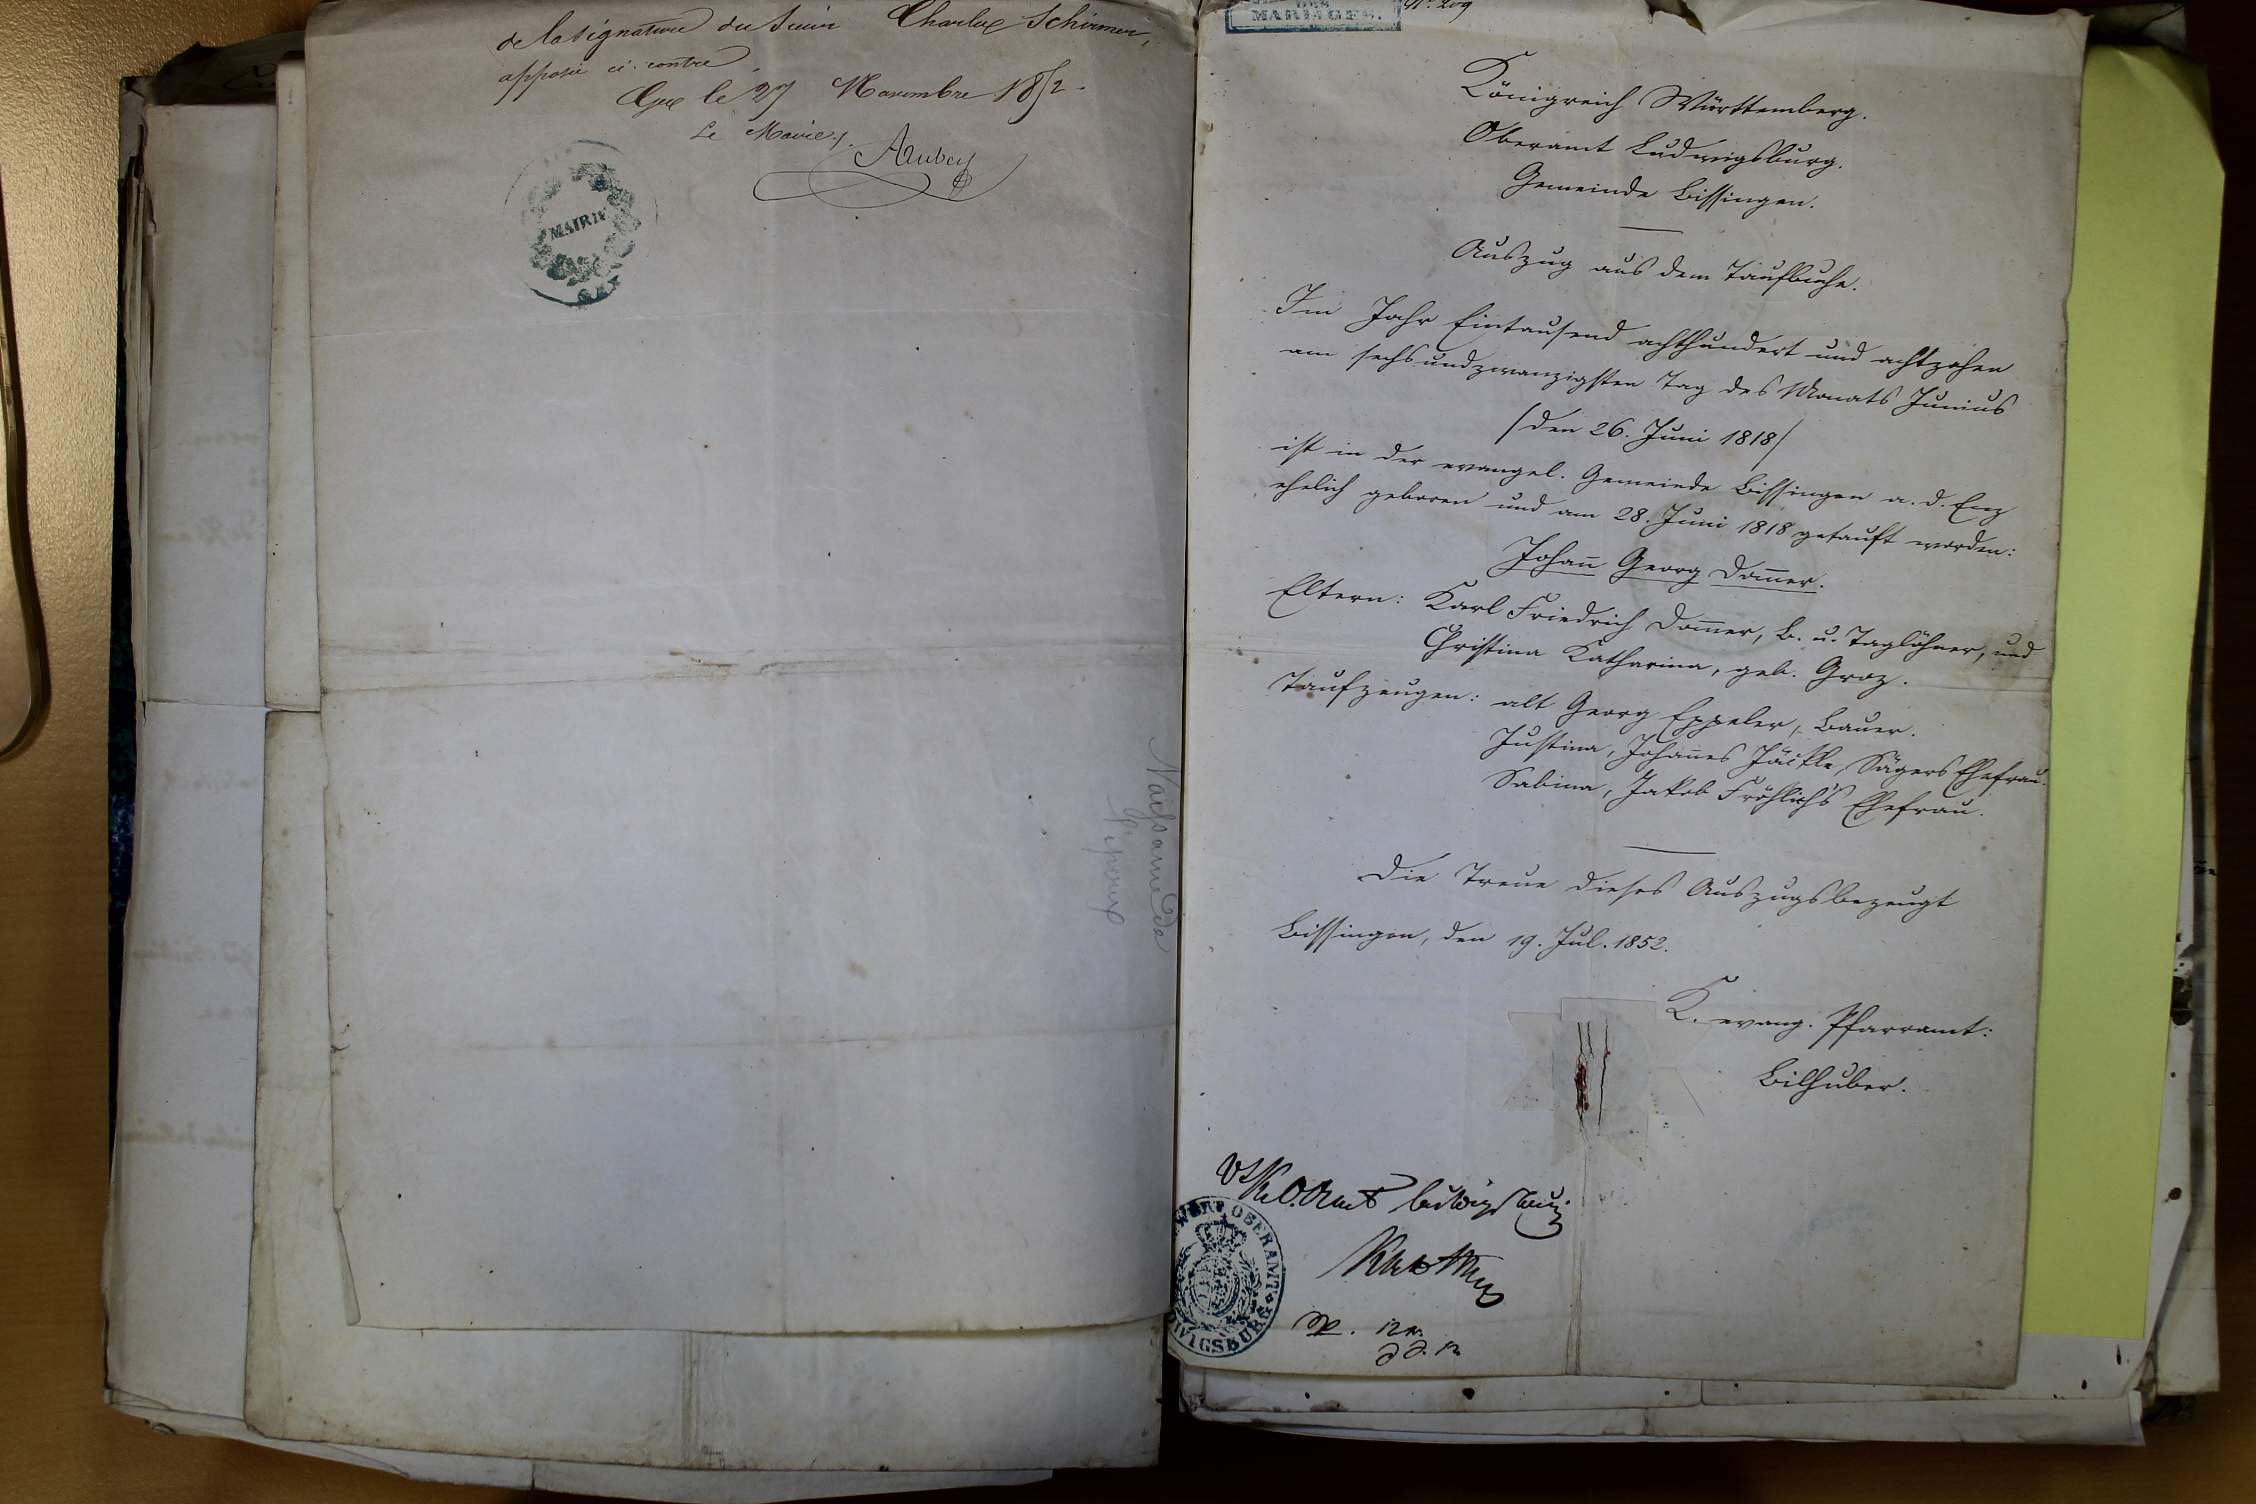 de la signature du Sieur Charles Schirmer,
apposée ci-contre
Gex le 27 Novembre 1852.
Le Maire,
MAIRIE
Naissance de
l'époux
DES
MARIAGES.
N° 209
Königreich Württemberg.
Oberamt Ludwigsburg.
Gemeinde Bissingen.
Auszug aus dem Taufbuche.
Im Jahr Eintausend achthundert und achtzehen
am sechsundzwanzigsten Tag des Monats Junius
/den 26. Juni 1818/
ist in der evangel. Gemeinde Bissingen a. d. Enz
ehelich geboren und am 28. Juni 1818 getauft worden:
Johann Georg Dom̄er.
Eltern: Karl Friedrich Dom̄er, B. u. Taglöhner, und
Christina Katharina, geb. Groz.
Taufzeugen: alt Georg Eppeler, Bauer.
Justina, Johannes Jäckle, Sägers Ehefrau.
Sabina, Jakob Fröhlich's Ehefrau.
Die Treue dieses Auszugs bezeugt
Bissingen, den 19. Jul. 1852.
K. evang. Pfarramt:
Bilhuber.
K. O. Amt Ludwigsburg
OBERAMT